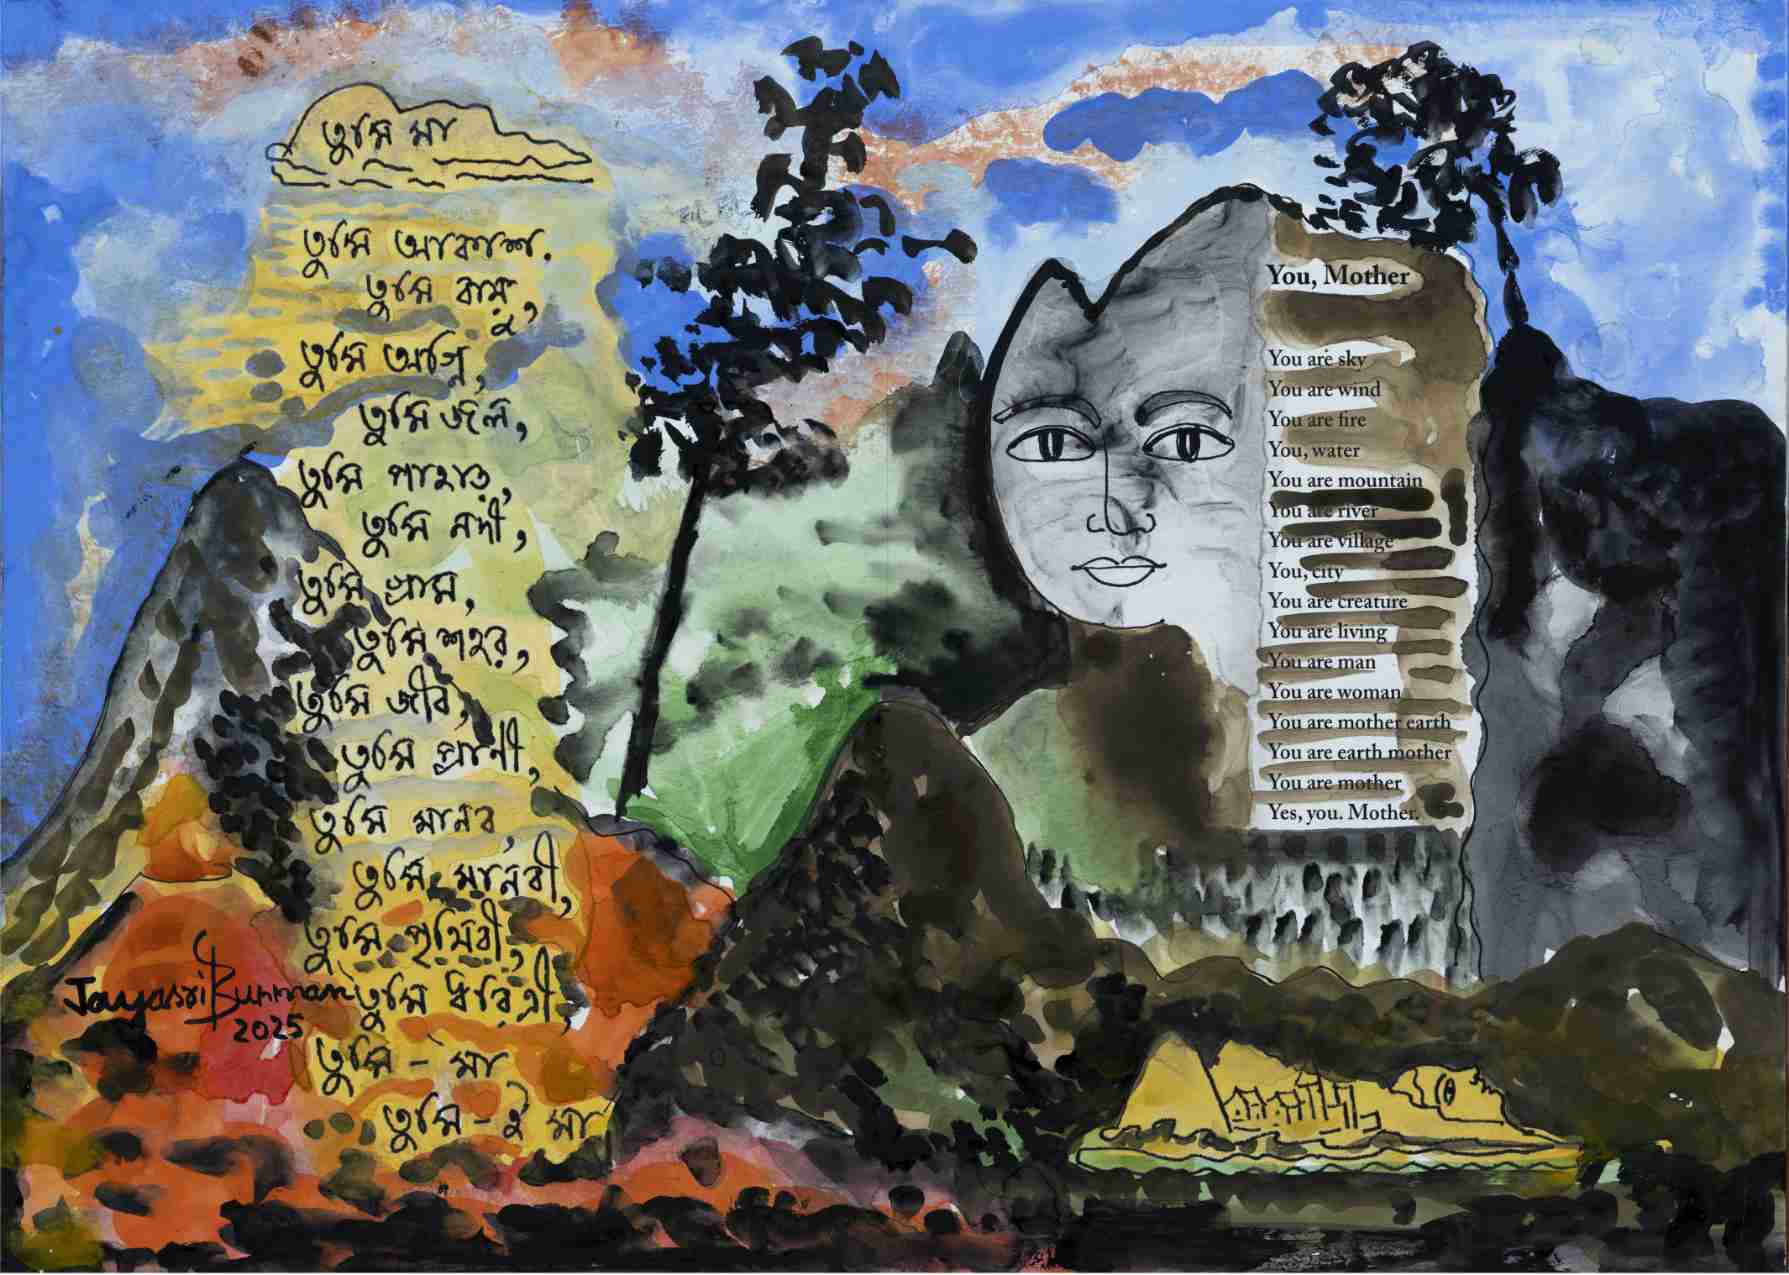 তুমি মা
তুমি আকাশ.
তুমি বায়ু,
তুমি অগ্নি,
তুমি জল,
তুমি পাহাড়,
তুমি নদী,
তুমি গ্রাম,
তুমি শহর,
তুমি জীব,
তুমি প্রাণী,
তুমি মানব,
তুমি মানবী,
তুমি পৃথিবী,
তুমি ধরিত্রী,
তুমি - মা
তুমি - ই মা
Jayasri Burman
2025
You, Mother
You are sky
You are wind
You are fire
You, water
You are mountain
You are river
You are village
You, city
You are creature
You are living
You are man
You are woman
You are mother earth
You are earth mother
You are mother
Yes, you. Mother.